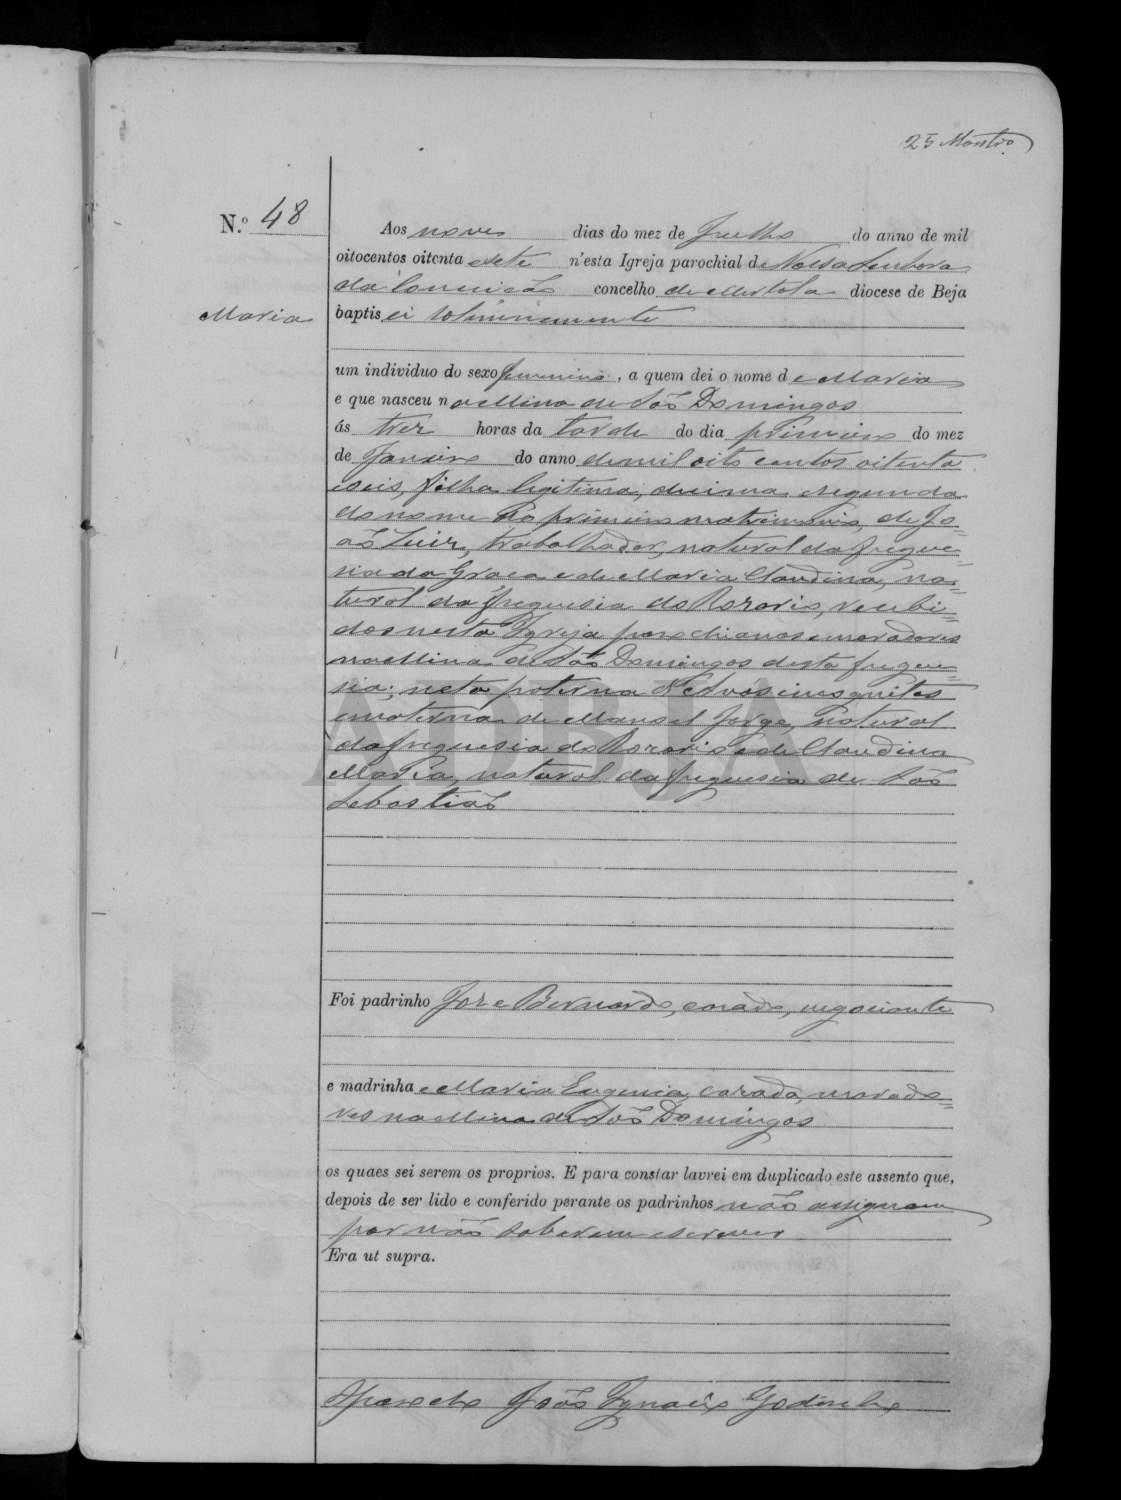 25
N.º 48
Aos nove dias do mez de Julho do anno de mil
oitocentos oitenta e sete n'esta Igreja parochial de Nossa Senhora
da Conceição concelho de Mertola diocese de Beja
Maria
baptisei solemnemente
um individuo do sexo femenino, a quem dei o nome de Maria
e que nasceu na Mina de São Domingos
ás trez horas da tarde do dia primeiro do mez
de Janeiro do anno de mil oito centos oitenta
e seis, filha legitima, decima segunda
do nome do primeiro matrimonio, de Jo=
ão Luiz, trabalhador, natural da fregue=
sia da Graça e de Maria Claudina, na=
tural da freguesia do Rozario, recebi=
dos nesta Igreja parochianos e moradores
na Mina de São Domingos desta fregue=
sia; neta paterna d'Avós incognitos
e materna de Manuel Jorge, natural
da freguesia do Rozario e de Claudina
Maria, natural da freguesia de São
Sebastião
ADBJA
Foi padrinho Joze Bernardo, cazado, negociante
e madrinha Maria Eugenia, cazada, morado=
res na Mina de São Domingos
os quaes sei serem os proprios. E para constar lavrei em duplicado este assento que,
depois de ser lido e conferido perante os padrinhos não assignam
por não saberem escrever.
Era ut supra.
O Parocho João Ignacio Godinho